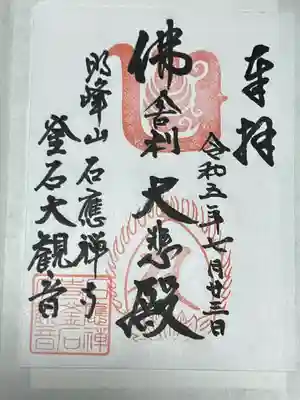 奉拝
令和五年七月廿三日
佛舎利 大悲殿
明峰山 石應禅寺
釜石大観音